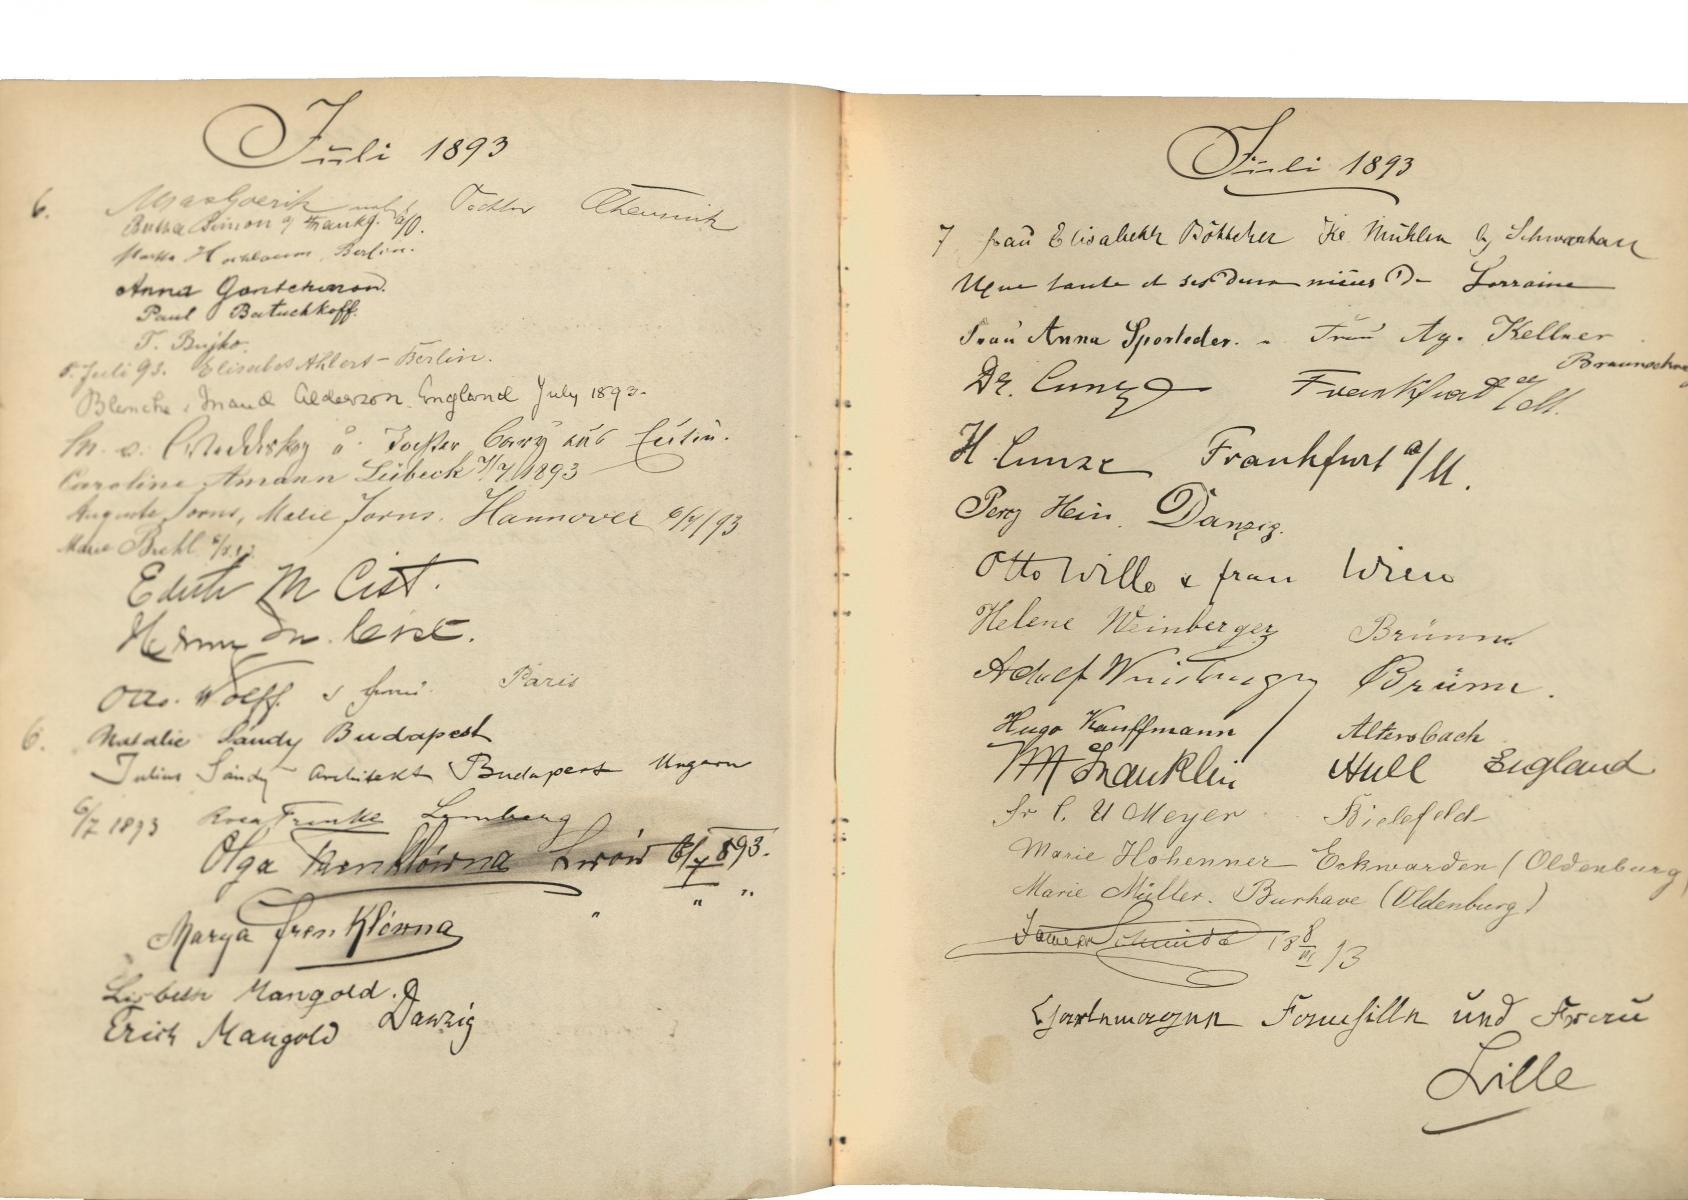 Juli 1893
6. Tochter Chemnitz
Simon Frankf. a/O.
Berlin.
Anna Gontscharow.
Paul Batuchkoff.
T. Bujko.
5. Juli 93. Elisabet Ahlert - Berlin.
Blanche & Maud Alderson England July 1893.
M. v. Tochter aus Eutin.
Caroline Amann Lübeck 7/7/1893
Auguste Jorns, Marie Jorns. Hannover 6/7/93
Marie
Edith M Cist.
Henry M. Cist.
Otto Wolff. & Paris
6. Natalie Sándy Budapest
Julius Sándy Architekt Budapest Ungarn
6/7 1893 Rosa Frenkel Lemberg
Olga Frenklówna Lwów 6/7 893.
Marya Frenklówna " " "
Lisbeth Mangold.
Erich Mangold Danzig
Juli 1893
7 Frau Elisabeth Böttcher Mühlen b/ Schwartau
Une tante et ses deux nièces De Lorraine
Frau Anna Sporleder. Frau Kellner
Braunschweig
Dr. Cunze Frankfurt a/M.
H. Cunze Frankfurt a/M.
Percy Hein. Danzig.
Otto Wille & Frau Wien
Helene Weinberger Brünn.
Adolf Weinberger Brünn.
Hugo Kauffmann Altersbach
M Franklin Hull England
Fr C. U Meyer Bielefeld
Marie Hohenner Eckwarden (Oldenburg)
Marie Müller. Burhave (Oldenburg)
Schmidt 18 8/VII 93
Familie und Frau
Lille